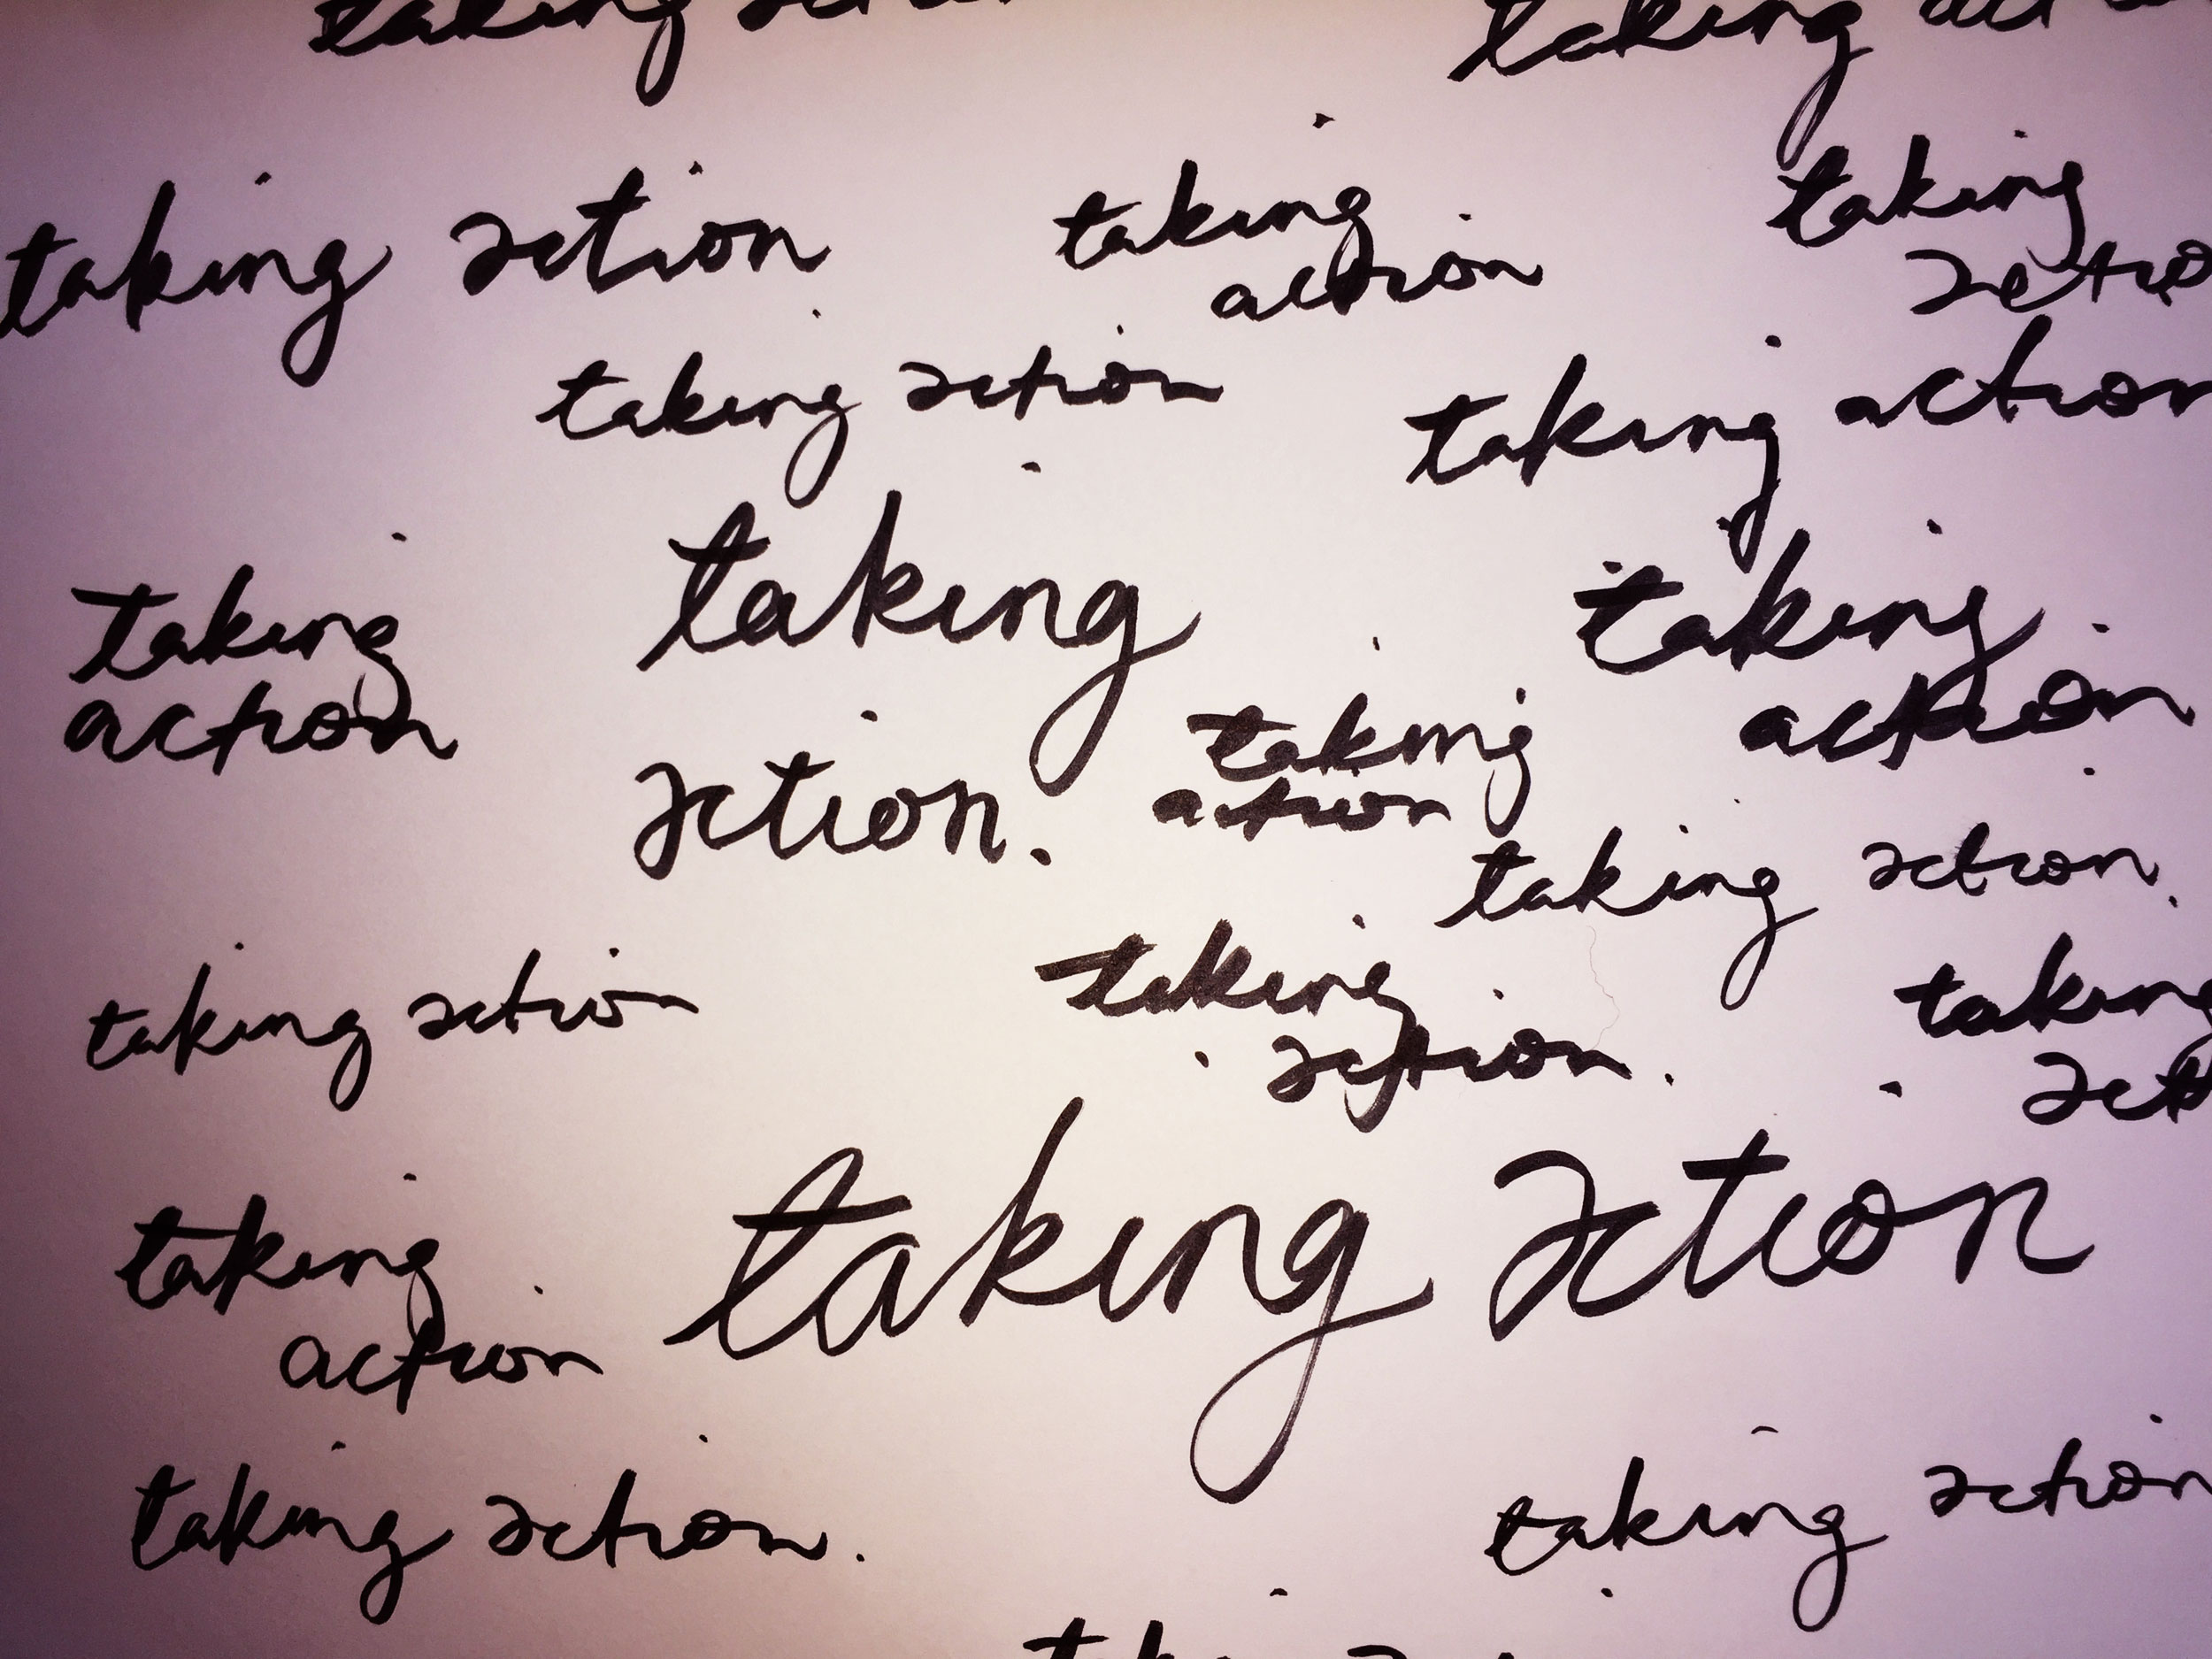 taking
taking
taking action
taking
action
taking
taking action
taking action
taking
action.
taking
action
taking
action
taking
action
taking action.
taking action
taking
action.
taking
taking action
taking
action
taking action.
taking action